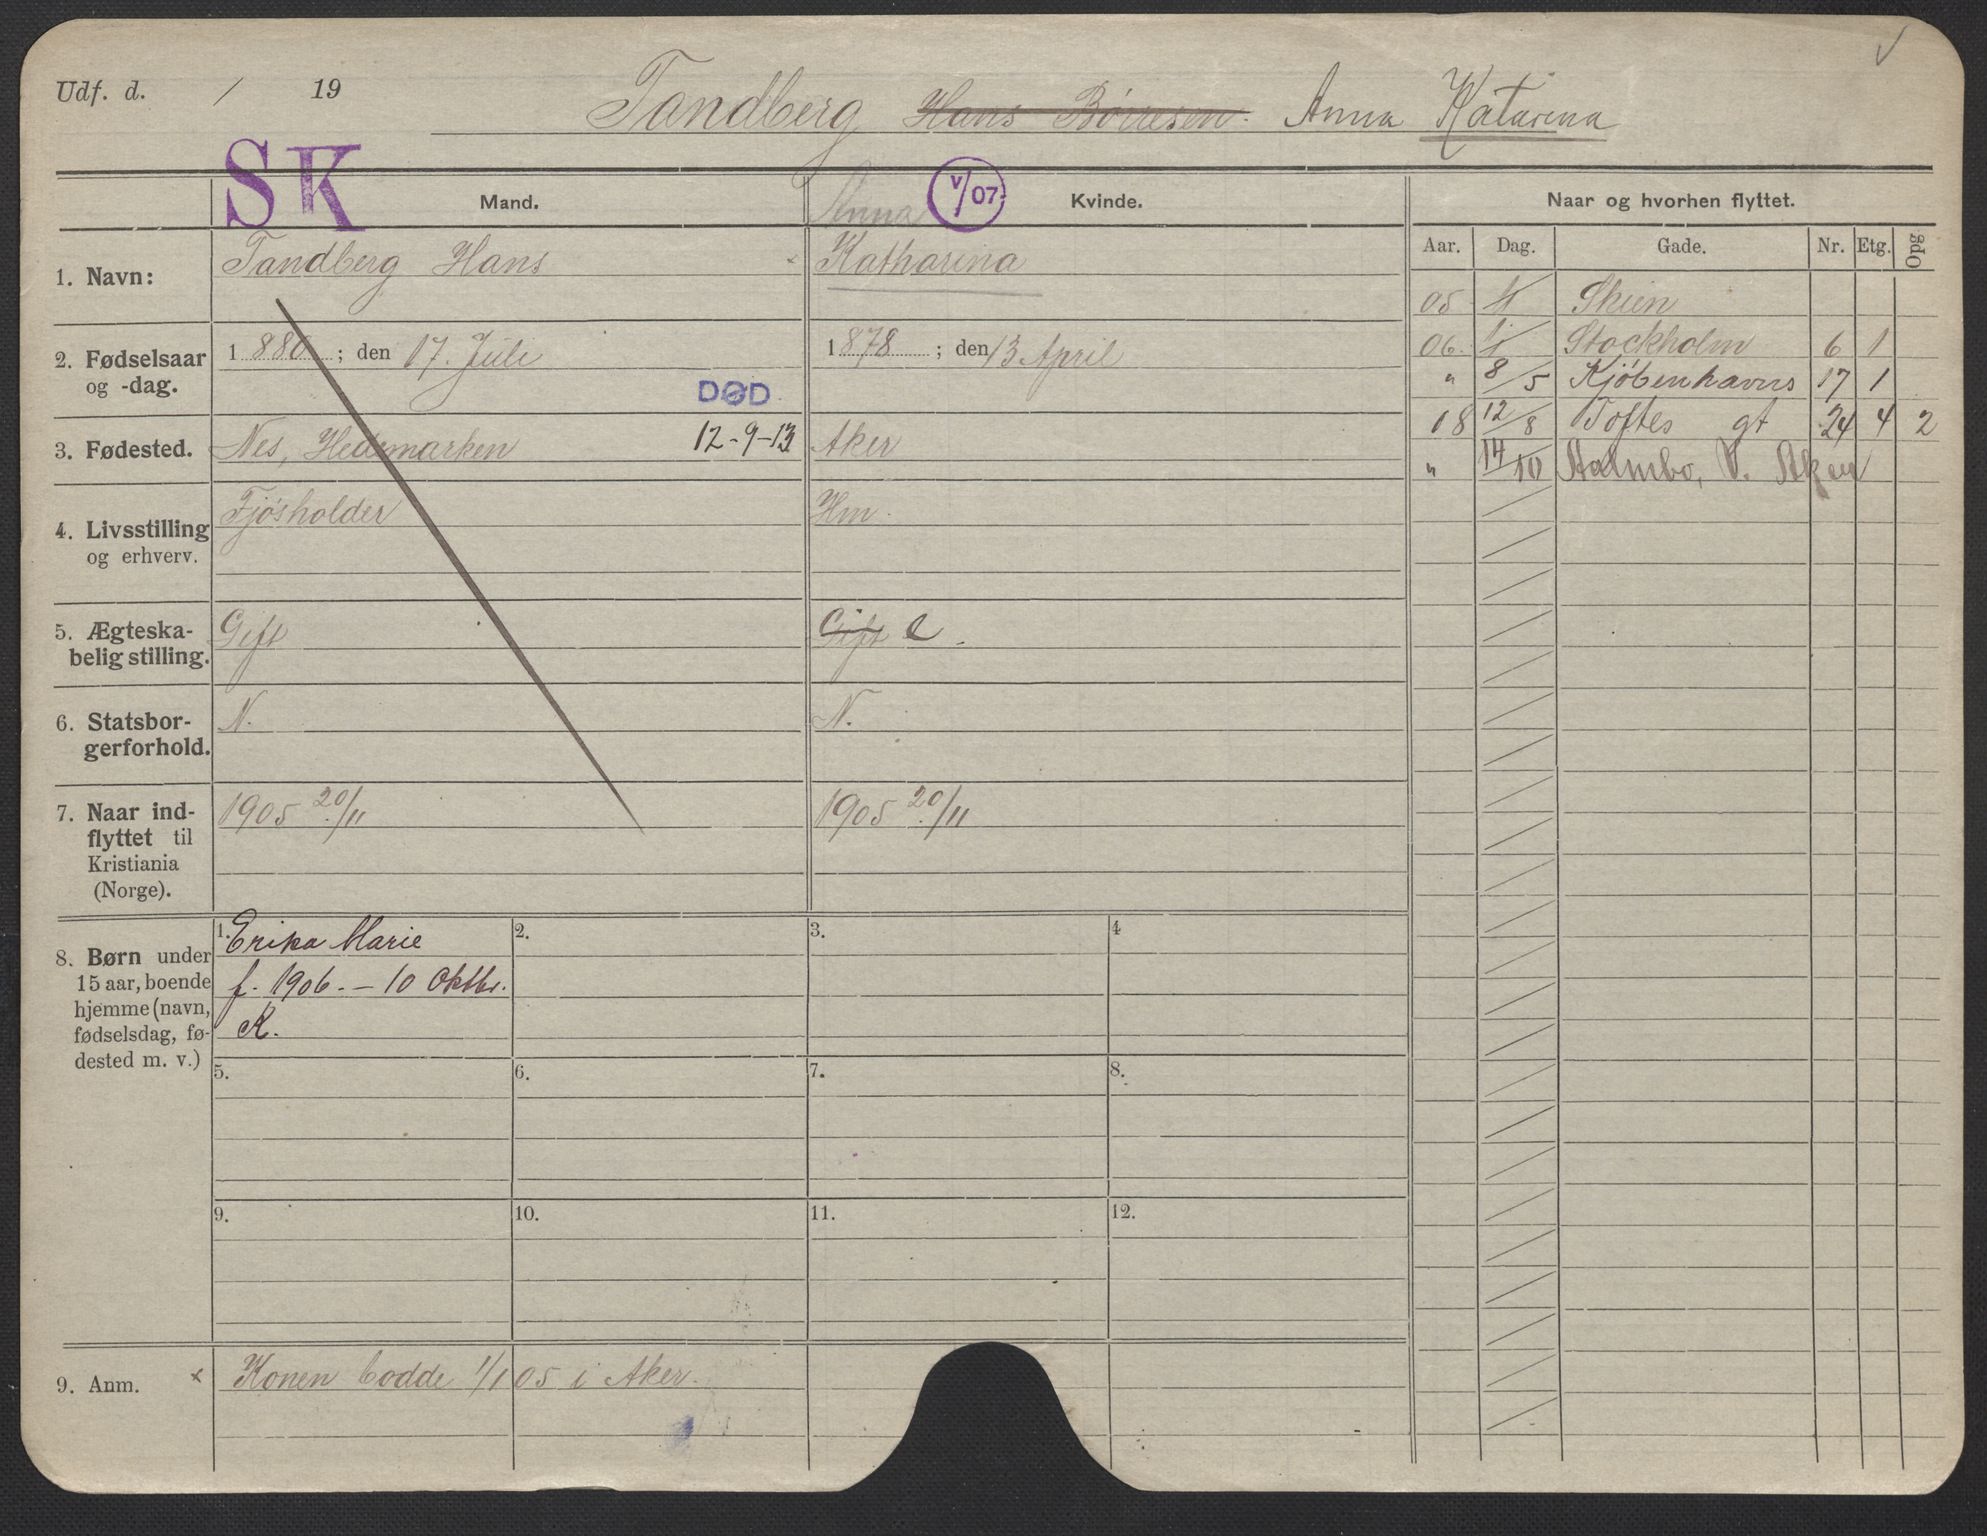 Udf. d. / 19
Tandberg Hans Börresen. Anna Katarina
SK
Mand.
Anna
V/07.
Kvinde.
Naar og hvorhen flyttet.
Aar. Dag. Gade. Nr. Etg. Opg
1. Navn:
Tandberg Hans
× Katharina
05 1/1 Skien
2. Fødselsaar og -dag.
1880; den 17. Juli
1878; den 13 April
06. 1/1 Stockholm 6 1
" 8/5 Kjöbenhavns 17 1
DØD
12-9-13
18 12/8 Toftes gt 24 4 2
3. Fødested.
Nes, Hedemarken
Aker
" 14/10 V. Aker
4. Livsstilling
og erhverv.
Fjösholder
Hm.
5. Ægteska-
belig stilling.
Gift
Gift e.
6. Statsbor-
gerforhold.
N.
N.
7. Naar ind-
flyttet til
Kristiania
(Norge).
1905 20/11
1905 20/11
8. Børn under
15 aar, boende
hjemme (navn,
fødselsdag, fø-
dested m. v.)
1. Erika Marie
f. 1906. - 10 Oktbr.
K.
2.
3.
4
5.
6.
7.
8.
9.
10.
11.
12.
9. Anm.
× Konen bodde 1/1 05 i Aker.